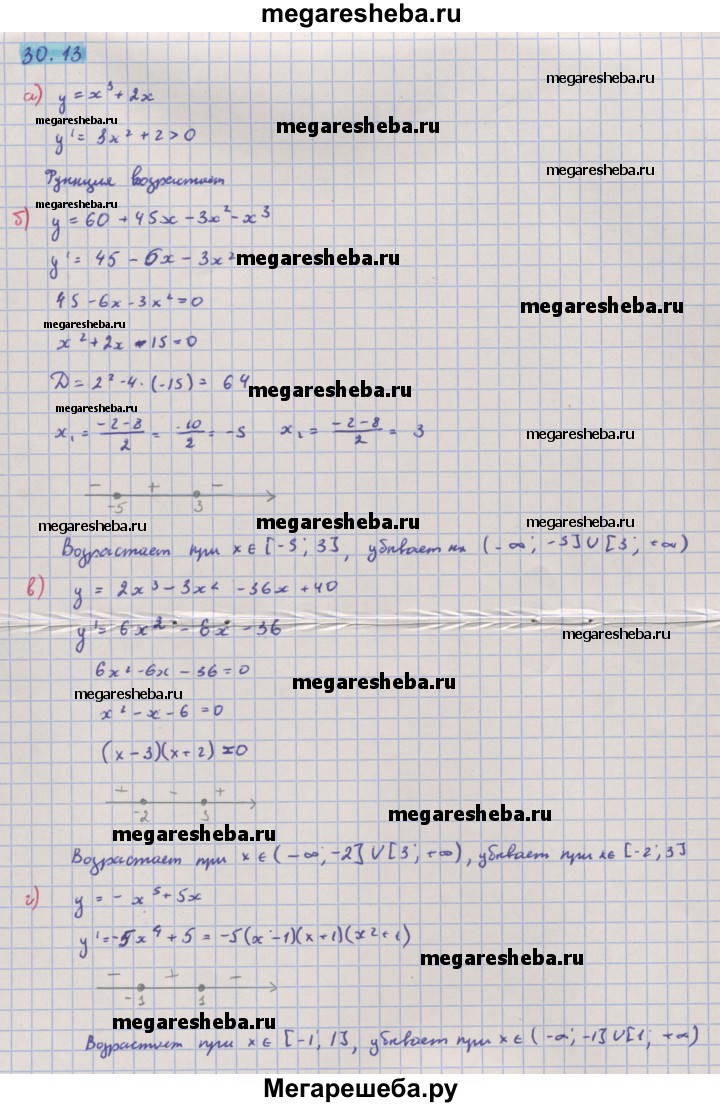 megaresheba.ru
30.13
megaresheba.ru
а) y = x³ + 2x
megaresheba.ru
megaresheba.ru
y' = 3x² + 2 > 0
megaresheba.ru
Функция возрастает
megaresheba.ru
б) y = 60 + 45x - 3x² - x³
y' = 45 - 6x - 3x²
megaresheba.ru
45 - 6x - 3x² = 0
megaresheba.ru
megaresheba.ru
x² + 2x - 15 = 0
D = 2² - 4 · (-15) = 64
megaresheba.ru
megaresheba.ru
x₁ = (-2-8)/2 = -10/2 = -5 x₂ = (-2-8)/2 = 3
megaresheba.ru
- + -
-5 3
megaresheba.ru
megaresheba.ru
megaresheba.ru
Возрастает при x ∈ [-5; 3], убывает на (-∞; -5] ∪ [3; +∞)
в) y = 2x³ - 3x² - 36x + 40
y' = 6x² - 6x - 36
megaresheba.ru
6x² - 6x - 36 = 0
megaresheba.ru
megaresheba.ru
x² - x - 6 = 0
(x - 3)(x + 2) = 0
+ - +
-2 3
megaresheba.ru
megaresheba.ru
Возрастает при x ∈ (-∞; -2] ∪ [3; +∞), убывает при x ∈ [-2; 3]
г) y = - x⁵ + 5x
y' = -5x⁴ + 5 = -5(x - 1)(x + 1)(x² + 1)
megaresheba.ru
- + -
-1 1
megaresheba.ru
Возрастает при x ∈ [-1; 1], убывает при x ∈ (-∞; -1] ∪ [1; +∞)
Мегарешеба.ру